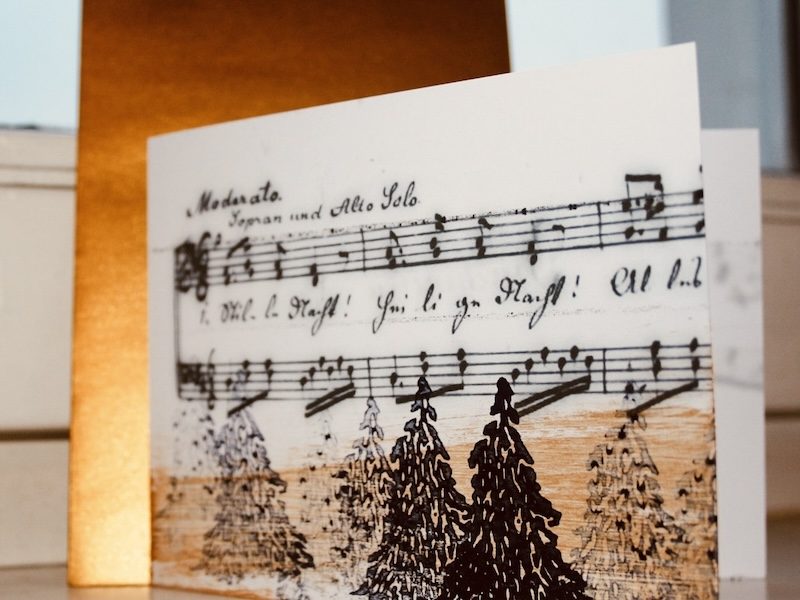 Moderato.
Sopran und Alto Solo
1. Stil- le Nacht! Hei li ge Nacht! Al les